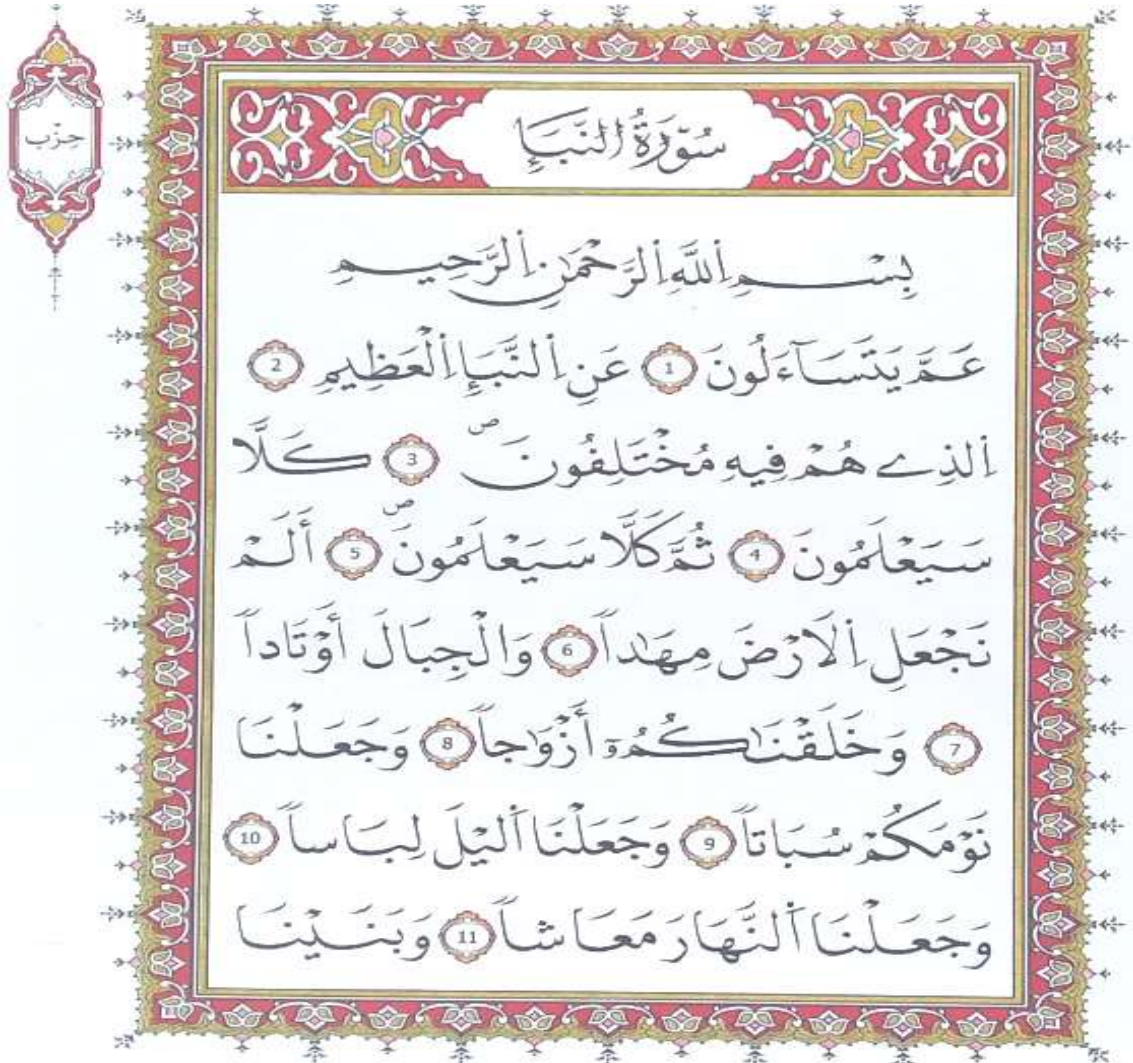 حِزْب
سُورَةُ اُ۬لنَّبَإِ
بِسْمِ اِ۬للَّهِ اِ۬لرَّحْمَٰنِ اِ۬لرَّحِيمِ
عَمَّ يَتَسَآءَلُونَ 1 عَنِ اِ۬لنَّبَإِ اِ۬لْعَظِيمِ 2
اِ۬لذِے هُمْ فِيهِ مُخْتَلِفُونَۖ 3 كَلَّا
سَيَعْلَمُونَ 4 ثُمَّ كَلَّا سَيَعْلَمُونَۖ 5 أَلَمْ
نَجْعَلِ اِ۬لَارْضَ مِهَٰداٗ 6 وَالْجِبَالَ أَوْتَاداٗ
7 وَخَلَقْنَٰكُمُۥٓ أَزْوَٰجاٗ 8 وَجَعَلْنَا
نَوْمَكُمْ سُبَاتاٗ 9 وَجَعَلْنَا اَ۬ليْلَ لِبَاساٗ 10
وَجَعَلْنَا اَ۬لنَّهَارَ مَعَاشاٗ 11 وَبَنَيْنَا